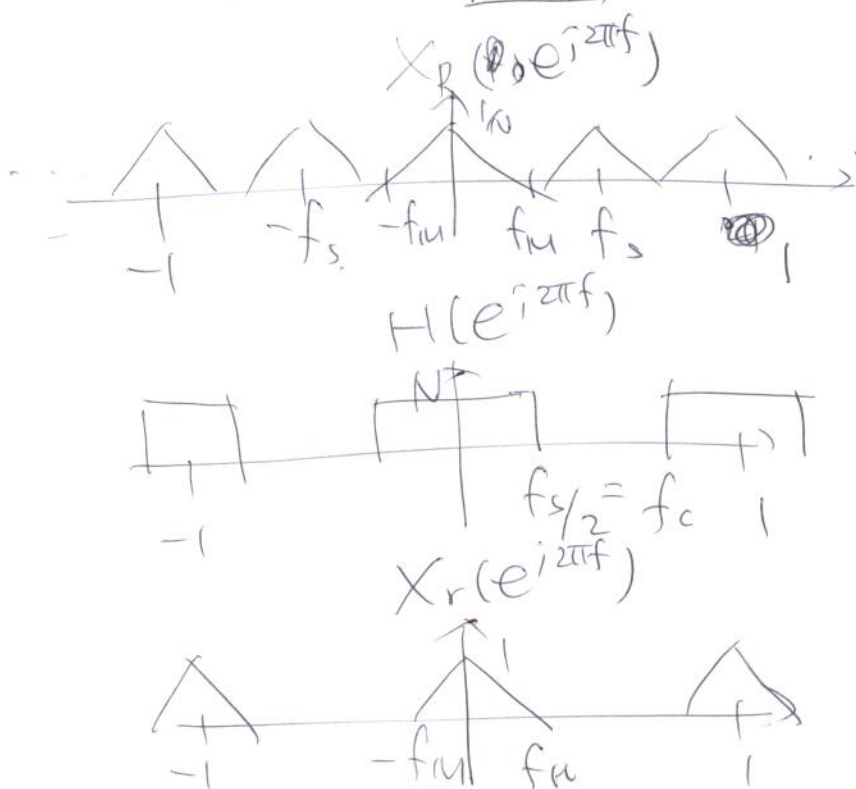 X_p(e^{i2πf})
1/N
-1 -f_s -f_M f_M f_s 1
H(e^{i2πf})
N
-1 f_s/2 = f_c 1
X_r(e^{i2πf})
1
-1 -f_M f_M 1